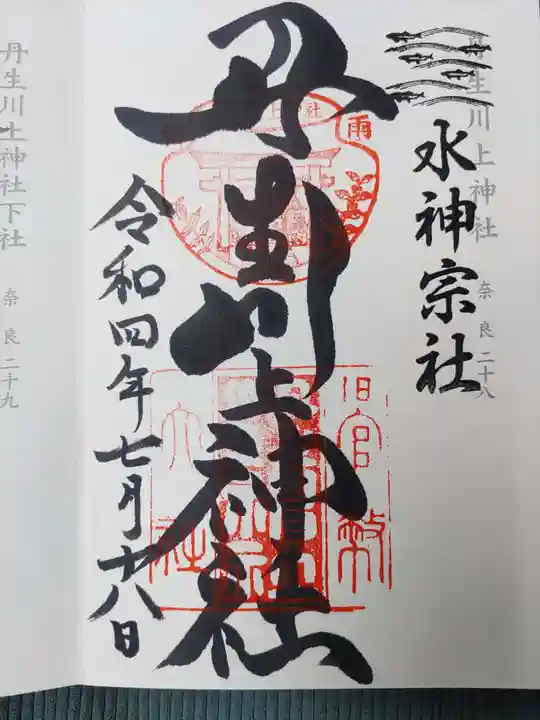 丹生川上神社
奈良二十八
水神宗社
丹生川上神社
雨
旧官幣
大社
令和四年七月十八日
丹生川上神社下社
奈良二十九